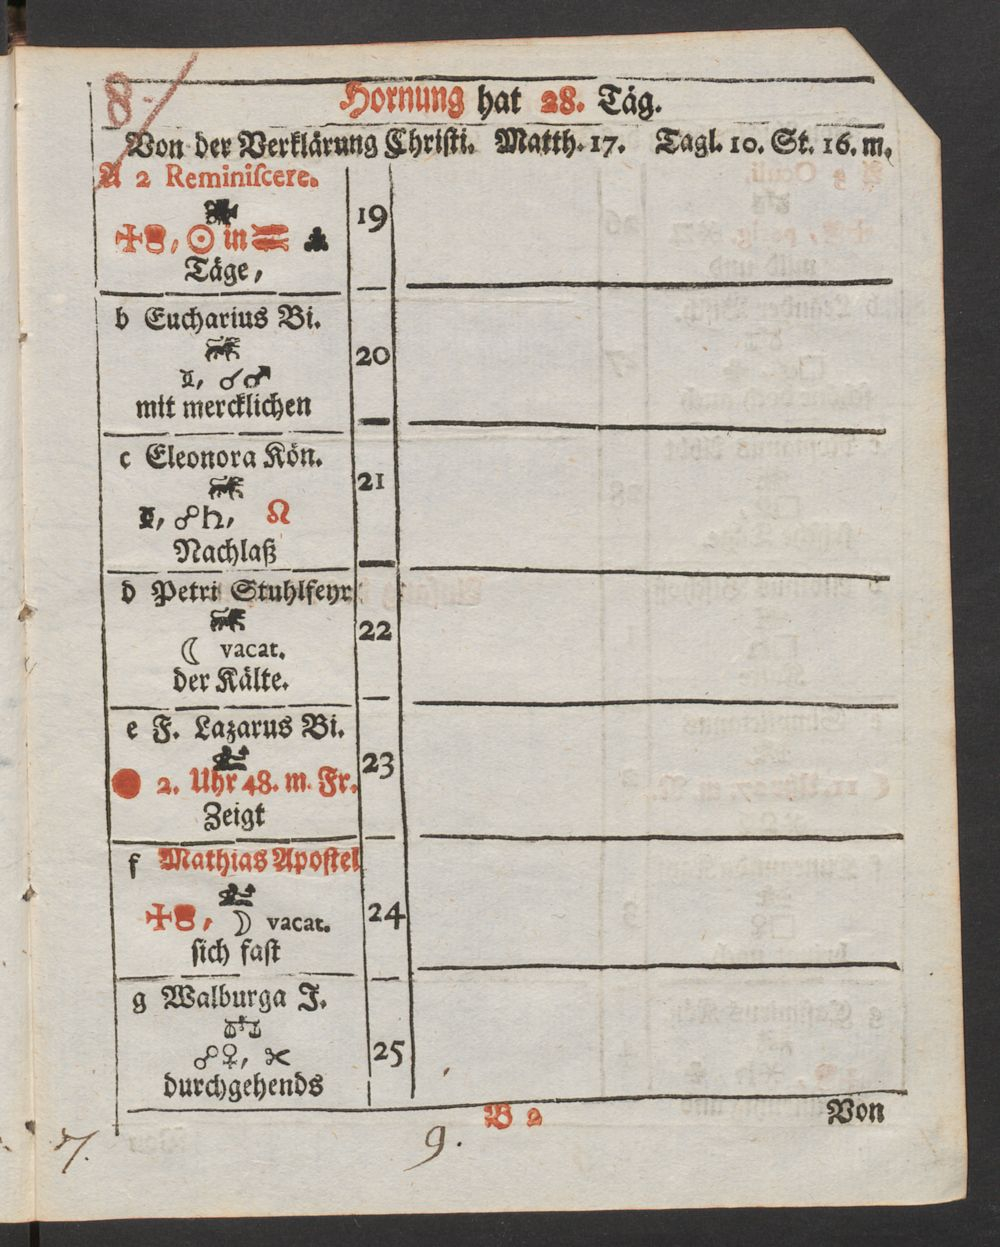 8.
Hornung hat 28. Täg.
Von der Verklärung Christi. Matth. 17. Tagl. 10. St. 16. m.
A 2 Reminiscere.
19
, ☉ in
Täge,
b Eucharius Bi.
20
♊, ☌♂
mit mercklichen
c Eleonora Kön.
21
♊, ☍♄, ☊
Nachlaß
d Petri Stuhlfeyr
22
☾ vacat.
der Kälte.
e F. Lazarus Bi.
23
2. Uhr 48. m. Fr.
Zeigt
f Mathias Apostel
24
, ☽ vacat.
sich fast
g Walburga J.
25
☍♀, ✂
durchgehends
B 2 Von
7. 9.